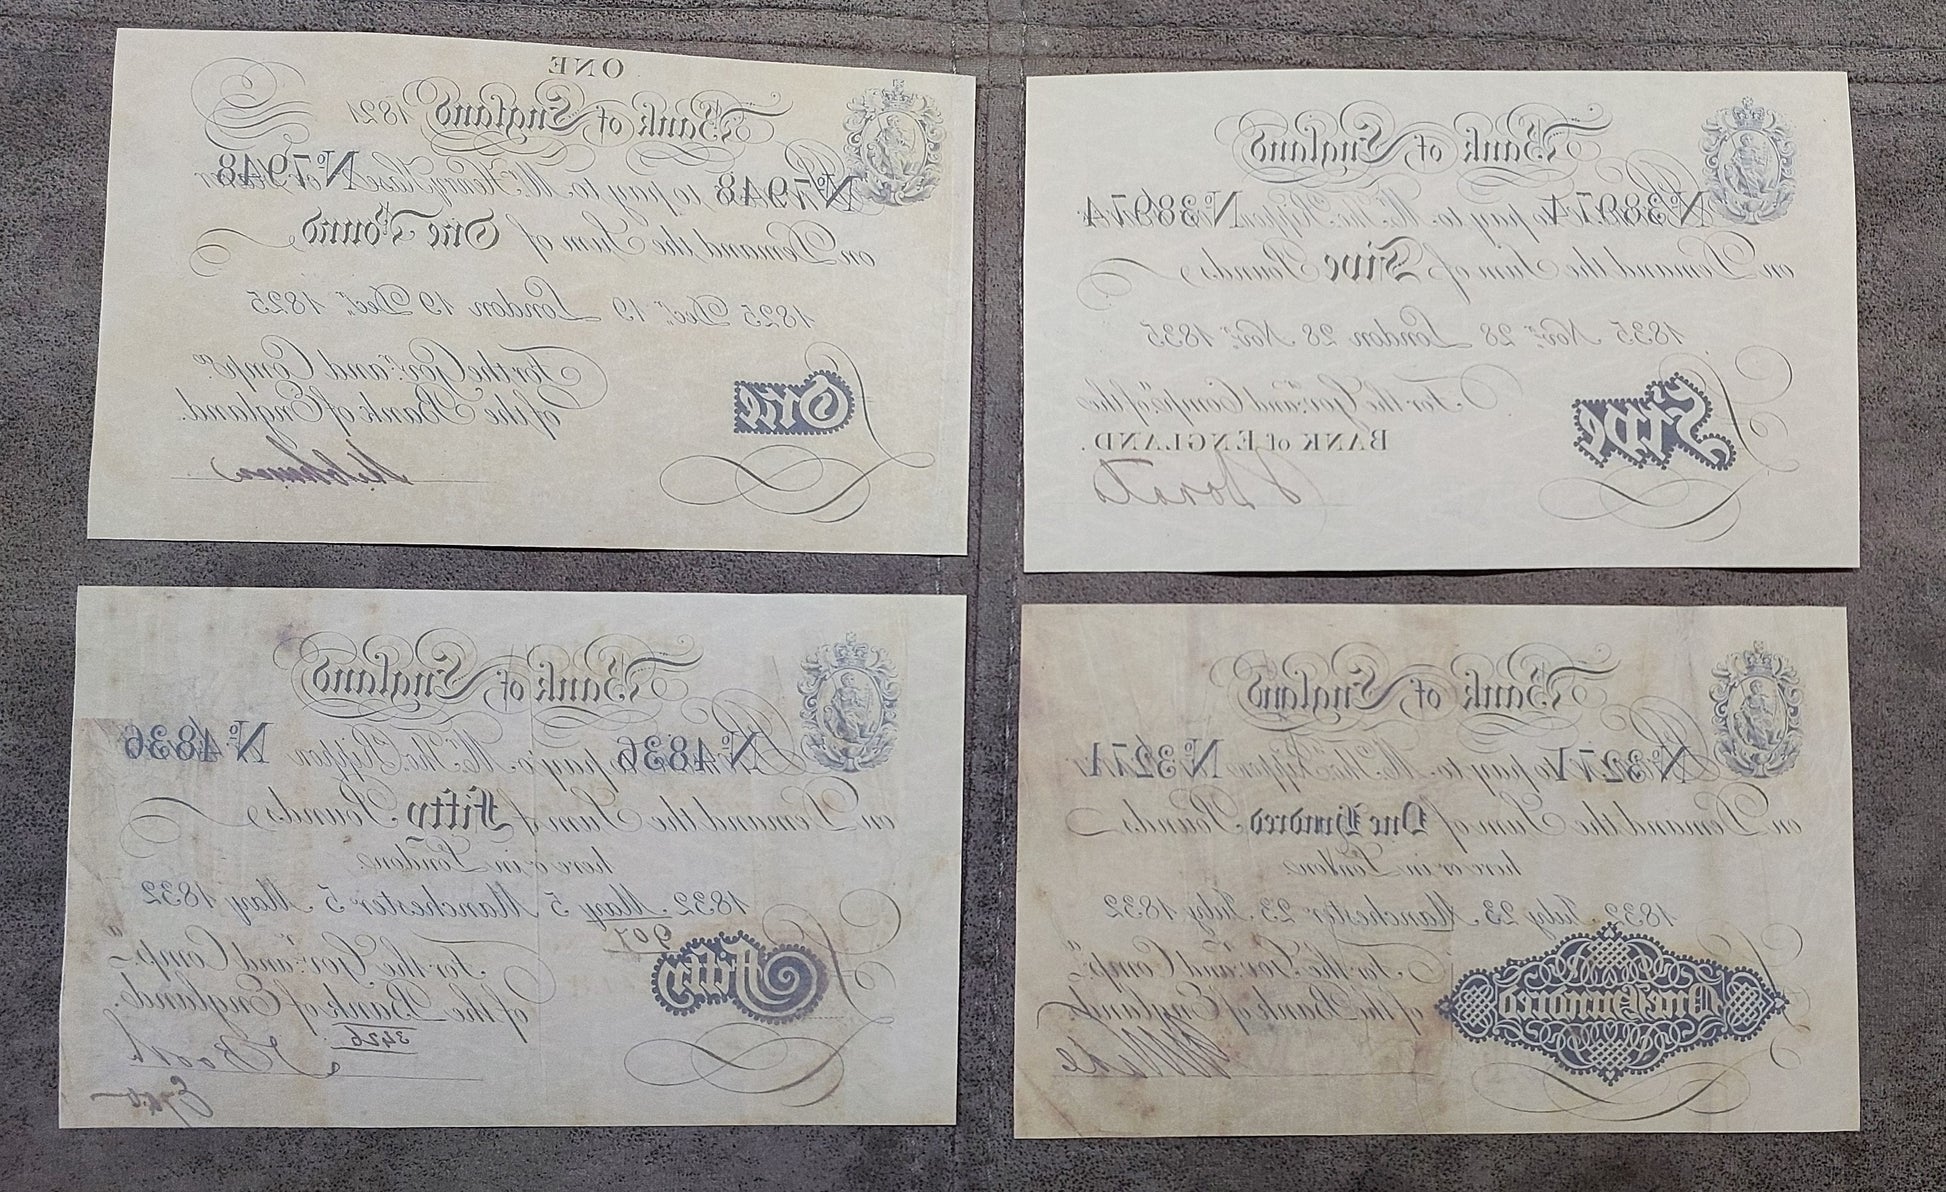 ONE
Bank of England 1821
Nº 7948 to pay to Mr. Henry Hase Nº 7948
on Demand the Sum of One Pound
1825 Decr. 19 London 19 Decr. 1825
For the Govr. and Compa.
of the Bank of England.
One
Bank of England
Nº 38974 to pay to Mr. Tho. Rippon Nº 38974
on Demand the Sum of Five Pounds
1835 Novr. 28 London 28 Novr. 1835
For the Govr. and Compa. of the
BANK OF ENGLAND.
Five
Bank of England
Nº 4836 to pay to Mr. Tho. Rippon Nº 4836
on Demand the Sum of Fifty Pounds
here or in London
1832 May 5 Manchester 5 May 1832
907
For the Govr. and Compa.
of the Bank of England.
Fifty
3426
J Booth
Bank of England
Nº 3271 to pay to Mr. Tho. Rippon Nº 3271
on Demand the Sum of One Hundred Pounds
here or in London
1832 July 23 Manchester 23 July 1832
For the Govr. and Compa.
of the Bank of England
One Hundred